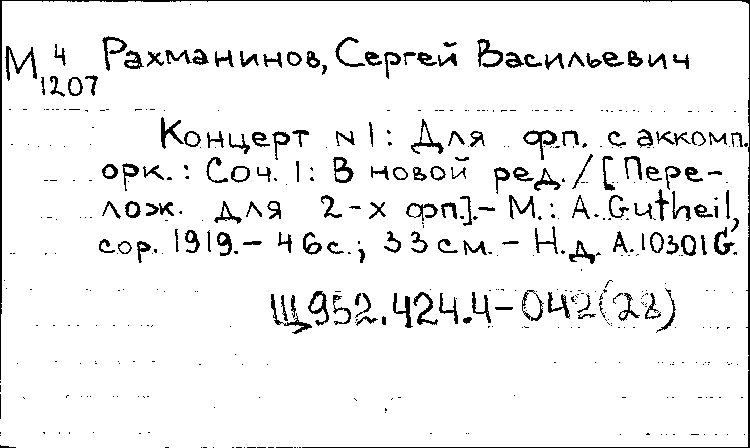 М 4 Рахманинов, Сергей Васильевич
1207
Концерт N1: Для фп. с аккомп.
орк.: Соч. 1: В новой ред./[Пере-
лож. для 2-х фп.].- М.: A. Gutheil,
cop. 1919.- 46с.; 33см.- Н.д. A.10301G.
Щ952.424.4-042(28)